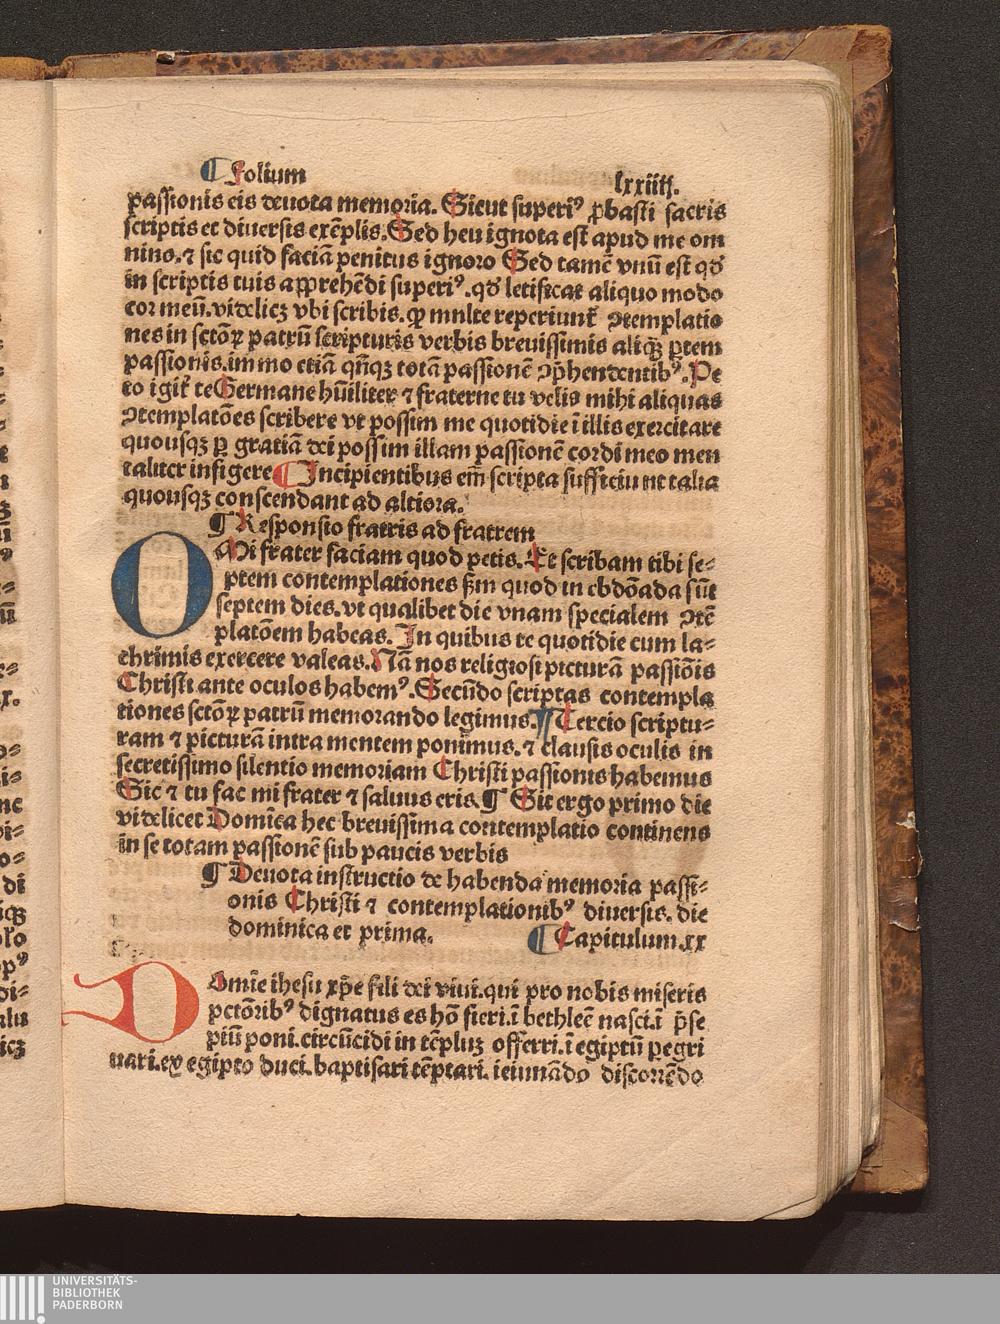 ¶ Folium lxxiiij.
passionis eis deuota memoria. Sicut superiꝰ ꝓbasti sacris
scriptis et diuersis exēplis. Sed heu ignota est apud me om
nino. ⁊ sic quid faciā penitus ignoro Sed tamē vnū est qđ
in scriptis tuis apprehēdi superiꝰ. qđ letificat aliquo modo
cor meū. videlicꝫ vbi scribis. ꝙ mnlte reperiunt᷑ ꝯtemplatio
nes in sctōꝝ patrū scripturis verbis breuissimis aliqꝫ ꝑtem
passionis. immo etiā qn̄qꝫ totā passionē ꝯp̄hendentibꝰ. Pe
to igit᷑ te Germane hūiliter ⁊ fraterne tu velis mihi aliquas
ꝯtemplatōes scribere vt possim me quotidie ī illis exercitare
quousqꝫ ꝑ gratiā dei possim illam passionē cordi meo men
taliter infigere ¶ Incipientibus em̄ scripta sufficiunt talia
quousqꝫ conscendant ad altiora.
¶ Responsio fratris ad fratrem
OMi frater faciam quod petis. Et scribam tibi se⸗
ptem contemplationes ẜm quod in ebdōada sūt
septem dies. vt qualibet die vnam specialem ꝯtē
platōem habeas. In quibus te quotidie cum la⸗
chrimis exercere valeas. Nā nos religiosi picturā passiōis
Christi ante oculos habemꝰ. Secūdo scriptas contempla
tiones sctōꝝ patrū memorando legimus. ¶ Tercio scriptu⸗
ram ⁊ picturā intra mentem ponimus. ⁊ clausis oculis in
secretissimo silentio memoriam Christi passionis habemus
Sic ⁊ tu fac mi frater ⁊ saluus eris. ¶ Sit ergo primo die
videlicet Domīca hec breuissima contemplatio continens
in se totam passionē sub paucis verbis
¶ Deuota instructio de habenda memoria passi⸗
onis Christi ⁊ contemplationibꝰ diuersis. die
dominica et prima. ¶ Capitulum. xx
DOmīe ihesu xp̄e fili dei viui. qui pro nobis miseris
pctōribꝰ dignatus es hō fieri. ī bethleē nasci. ī p̄se
piū poni. circūcidi in tēpluꝫ offerri. ī egiptū ꝑegri
nari. ex egipto duci. baptisari tēptari. ieiunādo discorrēdo
UNIVERSITÄTS-
BIBLIOTHEK
PADERBORN